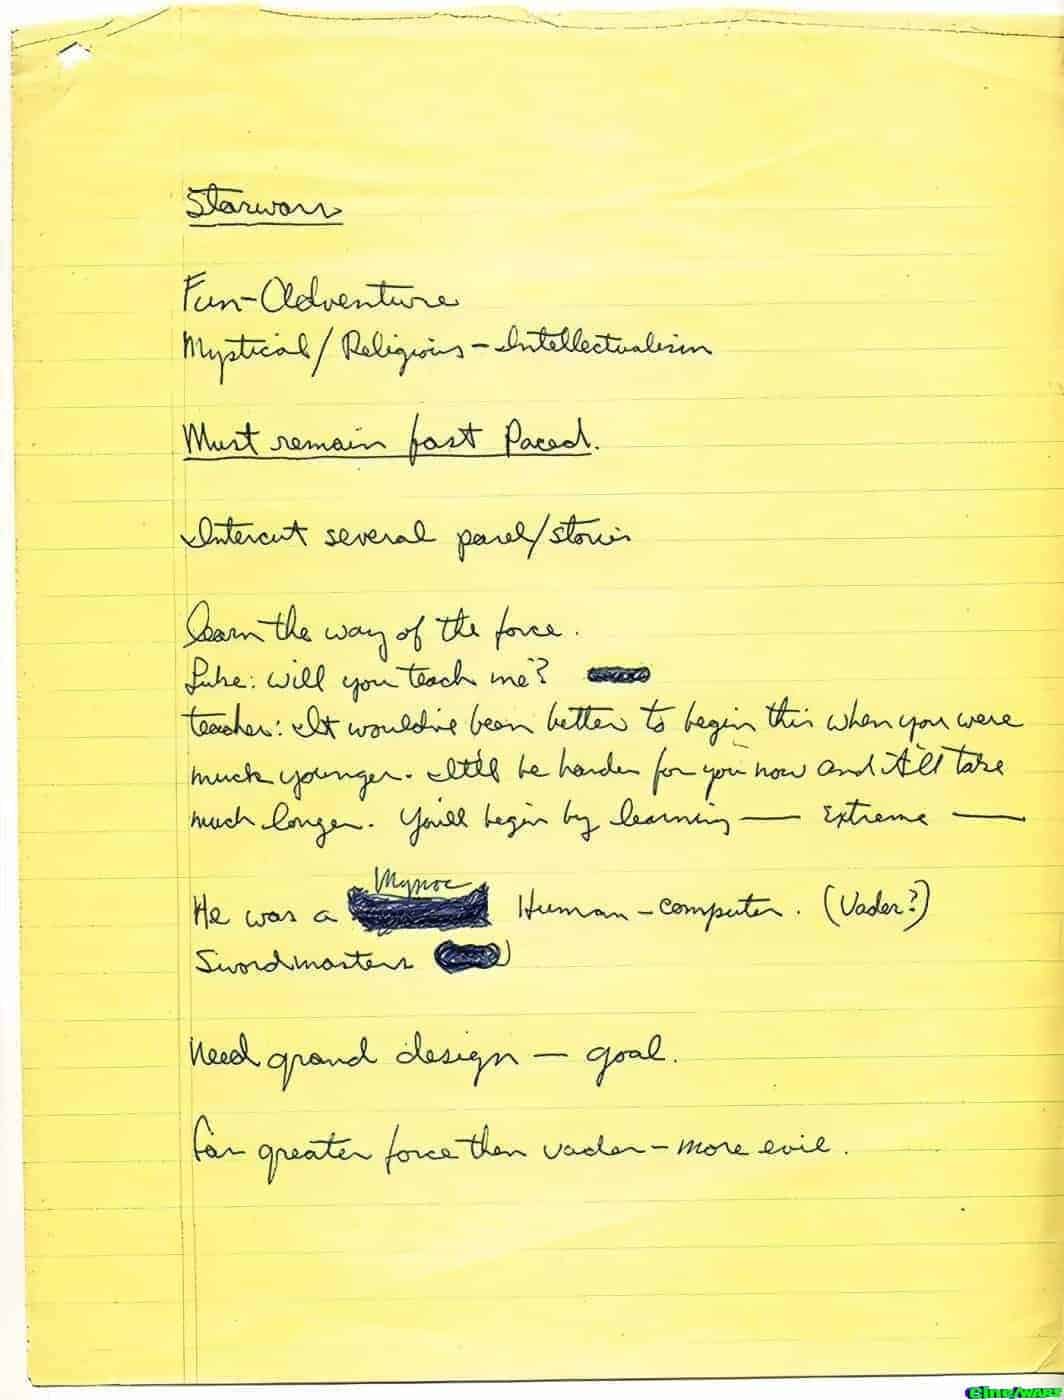 Starwars
Fun-Adventure
Mystical/Religious - Intellectualism
Must remain fast Paced.
Intercut several parel/stories
learn the way of the force.
Luke: will you teach me?
teacher: It would've been better to begin this when you were
much younger. It'll be harder for you now and it'll take
much longer. You'll begin by learning — Extreme —
Mynoc
He was a Human-computer. (Vader?)
Swordmasters
Need grand design — goal.
far greater force then vader - more evil.